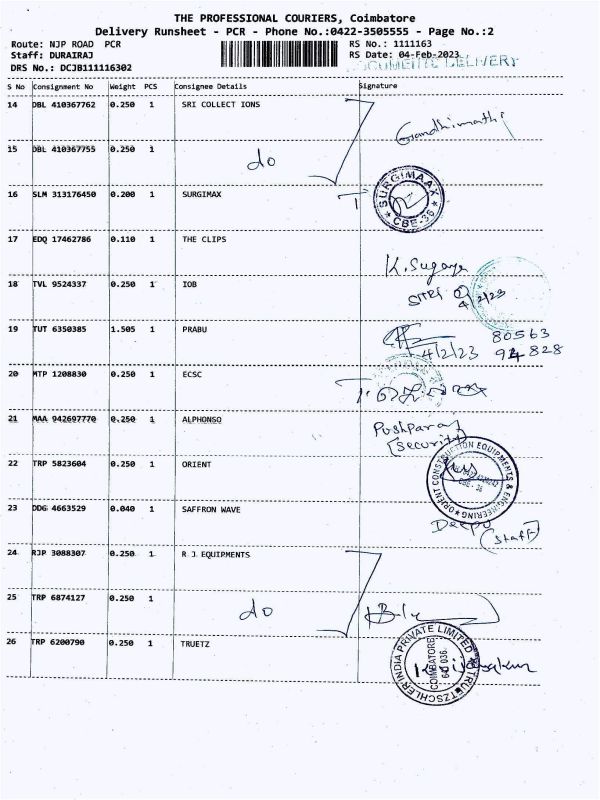 THE PROFESSIONAL COURIERS, Coimbatore
Delivery Runsheet - PCR - Phone No.:0422-3505555 - Page No.:2
Route: NJP ROAD PCR RS No.: 1111163
Staff: DURAIRAJ RS Date: 04-Feb-2023
DRS No.: DCJB111116302 DOCUMENTS DELIVERY
S No Consignment No Weight PCS Consignee Details Signature
14 DBL 410367762 0.250 1 SRI COLLECT IONS
Gandhimathi
15 DBL 410367755 0.250 1
do
16 SLM 313176450 0.200 1 SURGIMAX
SURGIMAAX
* CBE-36 *
17 EDQ 17462786 0.110 1 THE CLIPS
K. Suganya
18 TVL 9524337 0.250 1 IOB
4/2/23
19 TUT 6350385 1.505 1 PRABU
80563
4/2/23 94828
20 MTP 1208830 0.250 1 ECSC
21 MAA 942697770 0.250 1 ALPHONSO
Pushparaj
(Security)
22 TRP 5823604 0.250 1 ORIENT
ORIENT CONSTRUCTION EQUIPMENTS & ENGINEERING
CBE - 36
23 DDG 4663529 0.040 1 SAFFRON WAVE
Deepa
(Staff)
24 RJP 3088307 0.250 1 R J EQUIPMENTS
25 TRP 6874127 0.250 1
do
26 TRP 6200790 0.250 1 TRUETZ
TRUETZSCHLER INDIA PRIVATE LIMITED
COIMBATORE
641 036